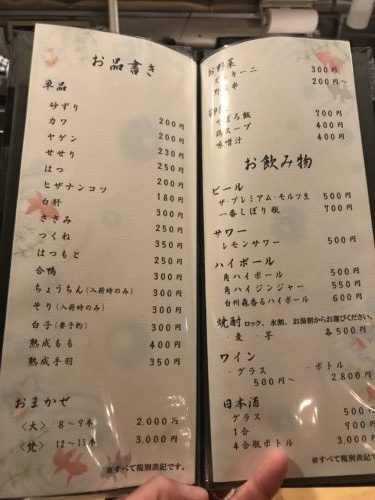 お品書き
単品
砂ずり 200円
カワ 200円
ヤゲン 200円
せせり 230円
はつ 250円
ヒザナンコツ 200円
白肝 180円
ささみ 300円
つくね 250円
はつもと 350円
合鴨 250円
ちょうちん(入荷時のみ) 300円
そり(入荷時のみ) 300円
白子(要予約) 300円
熟成もも 400円
熟成手羽 350円
おまかせ
〈大〉 8〜9本 2,000円
〈梵〉 12〜13本 3,000円
※すべて税別表記です。
お野菜
ズッキーニ 300円
200円〜
そぼろ飯 700円
鶏スープ 400円
味噌汁 400円
お飲み物
ビール
ザ・プレミアム・モルツ生 500円
一番しぼり瓶 700円
サワー
レモンサワー 500円
ハイボール
角ハイボール 500円
角ハイジンジャー 550円
白州森香るハイボール 600円
焼酎 ロック、水割、お湯割からお選びください。
・麦 ・芋 各500円
ワイン
・グラス ・ボトル
500円〜 2,800円
日本酒
グラス 500円
1合 900円
4合瓶ボトル 3,000円
※すべて税別表記です。